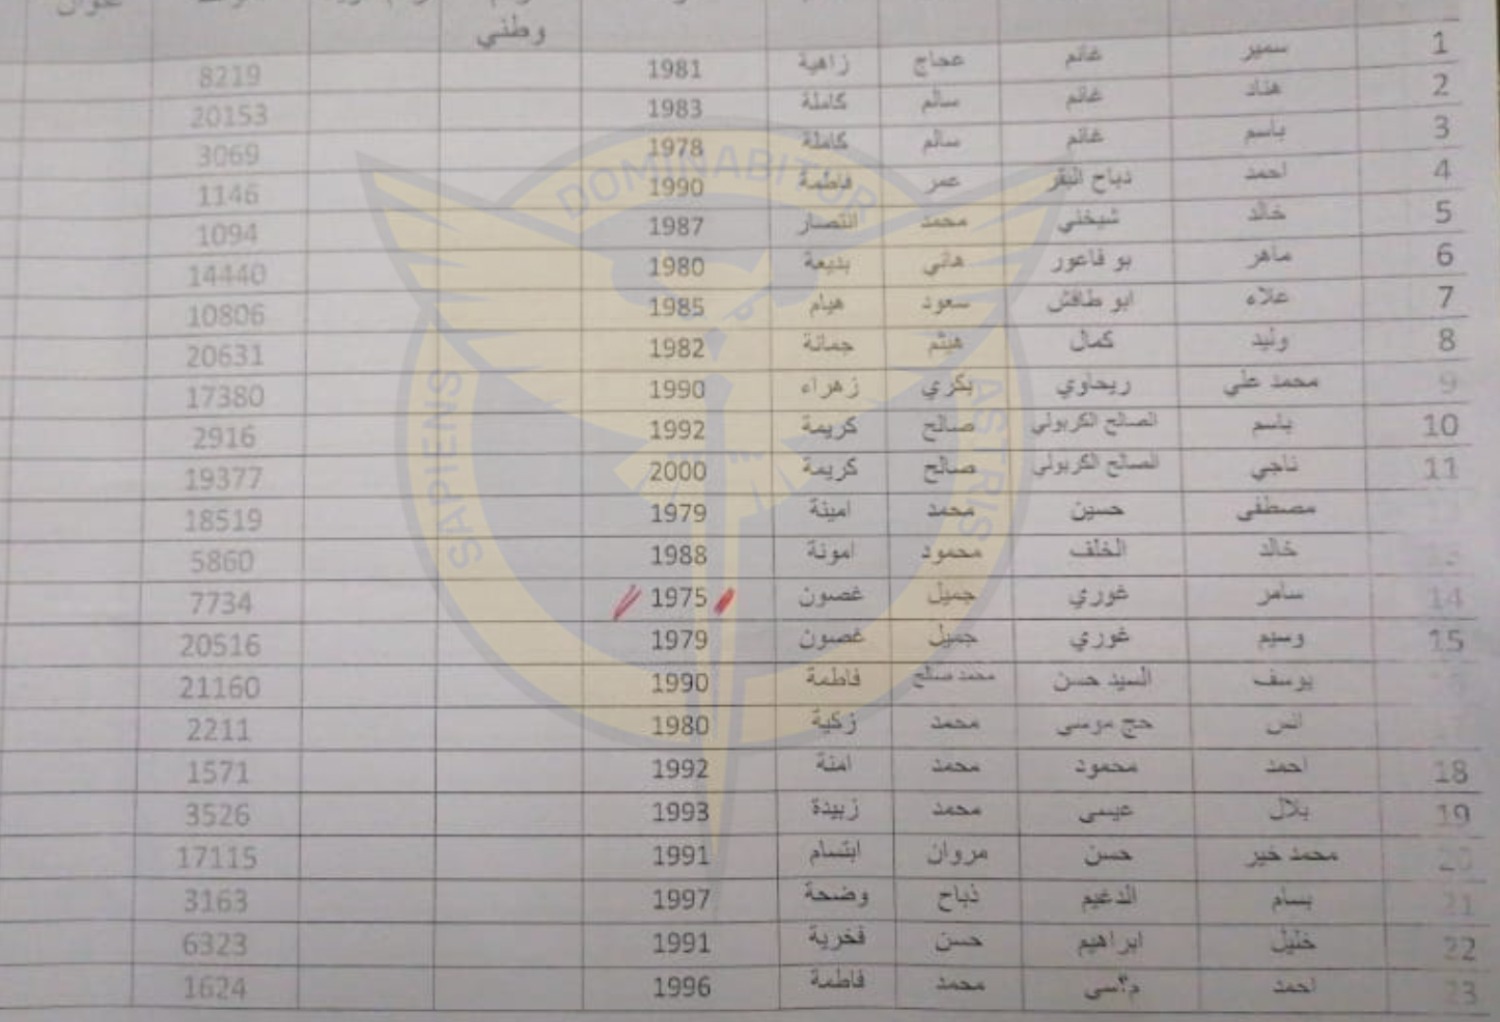 وطني
1 سمير غانم عجاج زاهية 1981 8219
2 هناد غانم سالم كاملة 1983 20153
3 باسم غانم سالم كاملة 1978 3069
4 احمد دباح البقر عمر فاطمة 1990 1146
5 خالد شيخني محمد انتصار 1987 1094
6 ماهر بو فاعور هاني بديعة 1980 14440
7 علاء ابو طافش سعود هيام 1985 10806
8 وليد كمال هيثم جمانة 1982 20631
9 محمد علي ريحاوي بكري زهراء 1990 17380
10 باسم الصالح الكربولي صالح كريمة 1992 2916
11 ناجي الصالح الكربولي صالح كريمة 2000 19377
مصطفى حسين محمد امينة 1979 18519
خالد الخلف محمود امونة 1988 5860
14 سامر غوري جميل غصون 1975 7734
15 وسيم غوري جميل غصون 1979 20516
يوسف السيد حسن محمد صالح فاطمة 1990 21160
انس حج موسى محمد زكية 1980 2211
18 احمد محمود محمد امنة 1992 1571
19 بلال عيسى محمد زبيدة 1993 3526
20 محمد خير حسن مروان ابتسام 1991 17115
21 بسام الدغيم ذباح وضحة 1997 3163
22 خليل ابراهيم حسن فخرية 1991 6323
23 احمد محمد فاطمة 1996 1624
SAPIENS DOMINABITUR ASTRIS